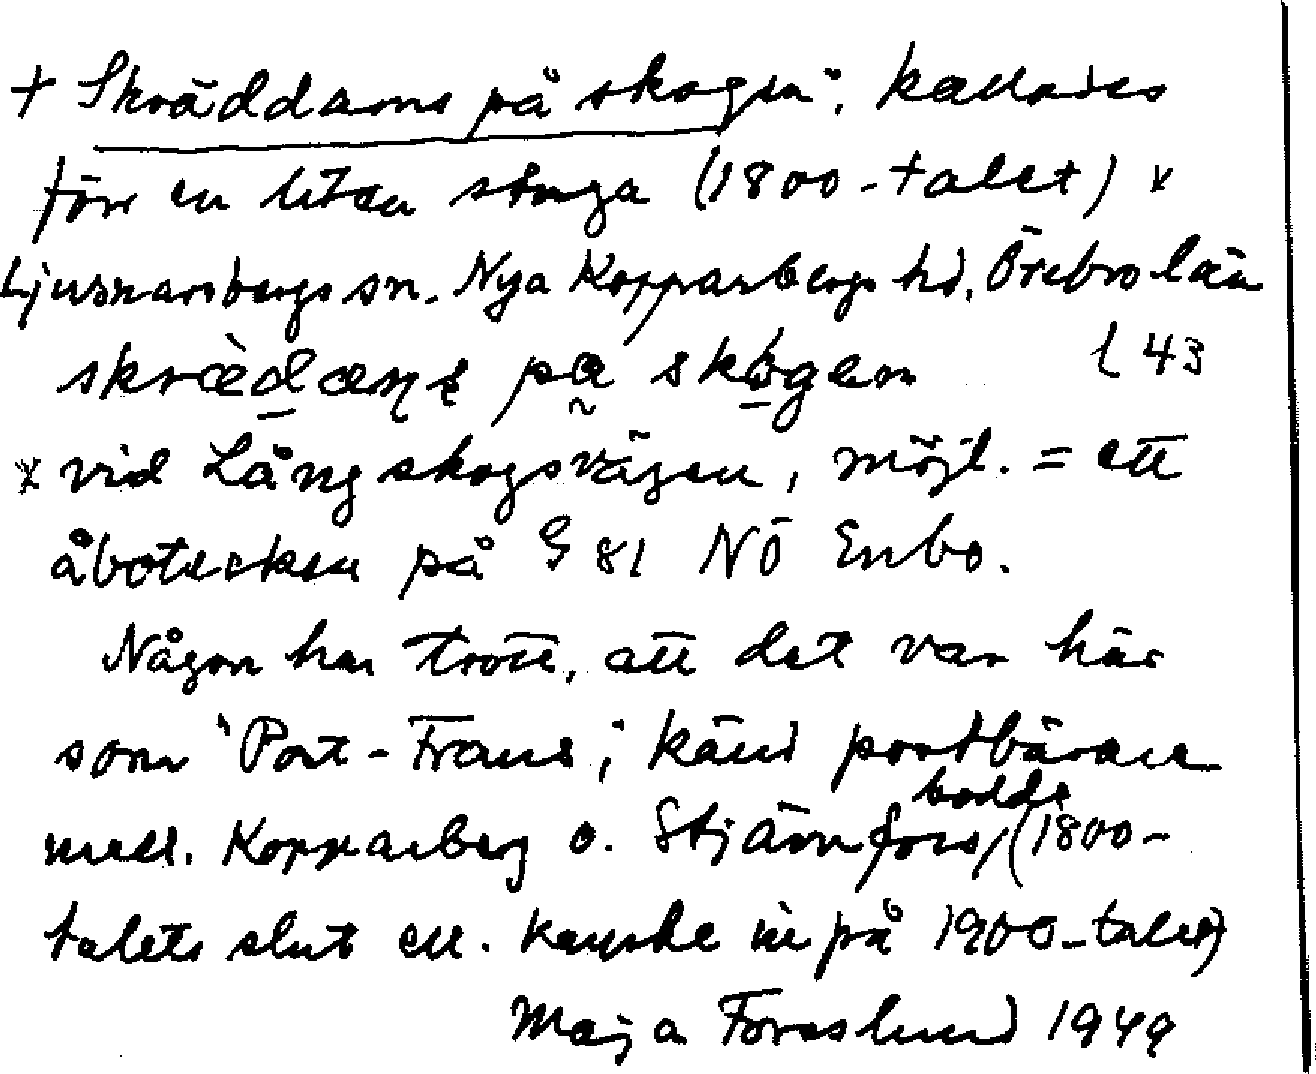 + Skräddarns på skogen", kallades
förr en liten stuga (1800-talet) x
Ljusnarsbergs sn. Nya Kopparbergs hd, Örebro län
skrædæṇṣ pa skogen l 43
x vid Långskogsvägen, möjl. = ett
åbotecken på § 81 NÖ Enbo.
Någon har trott, att det var här
som "Post-Frans", känd postbärare
mell. Kopparberg o. Stjärnfors, bodde (1800-
talets slut ell. kanske in på 1900-talet)
Maja Forsslund 1949